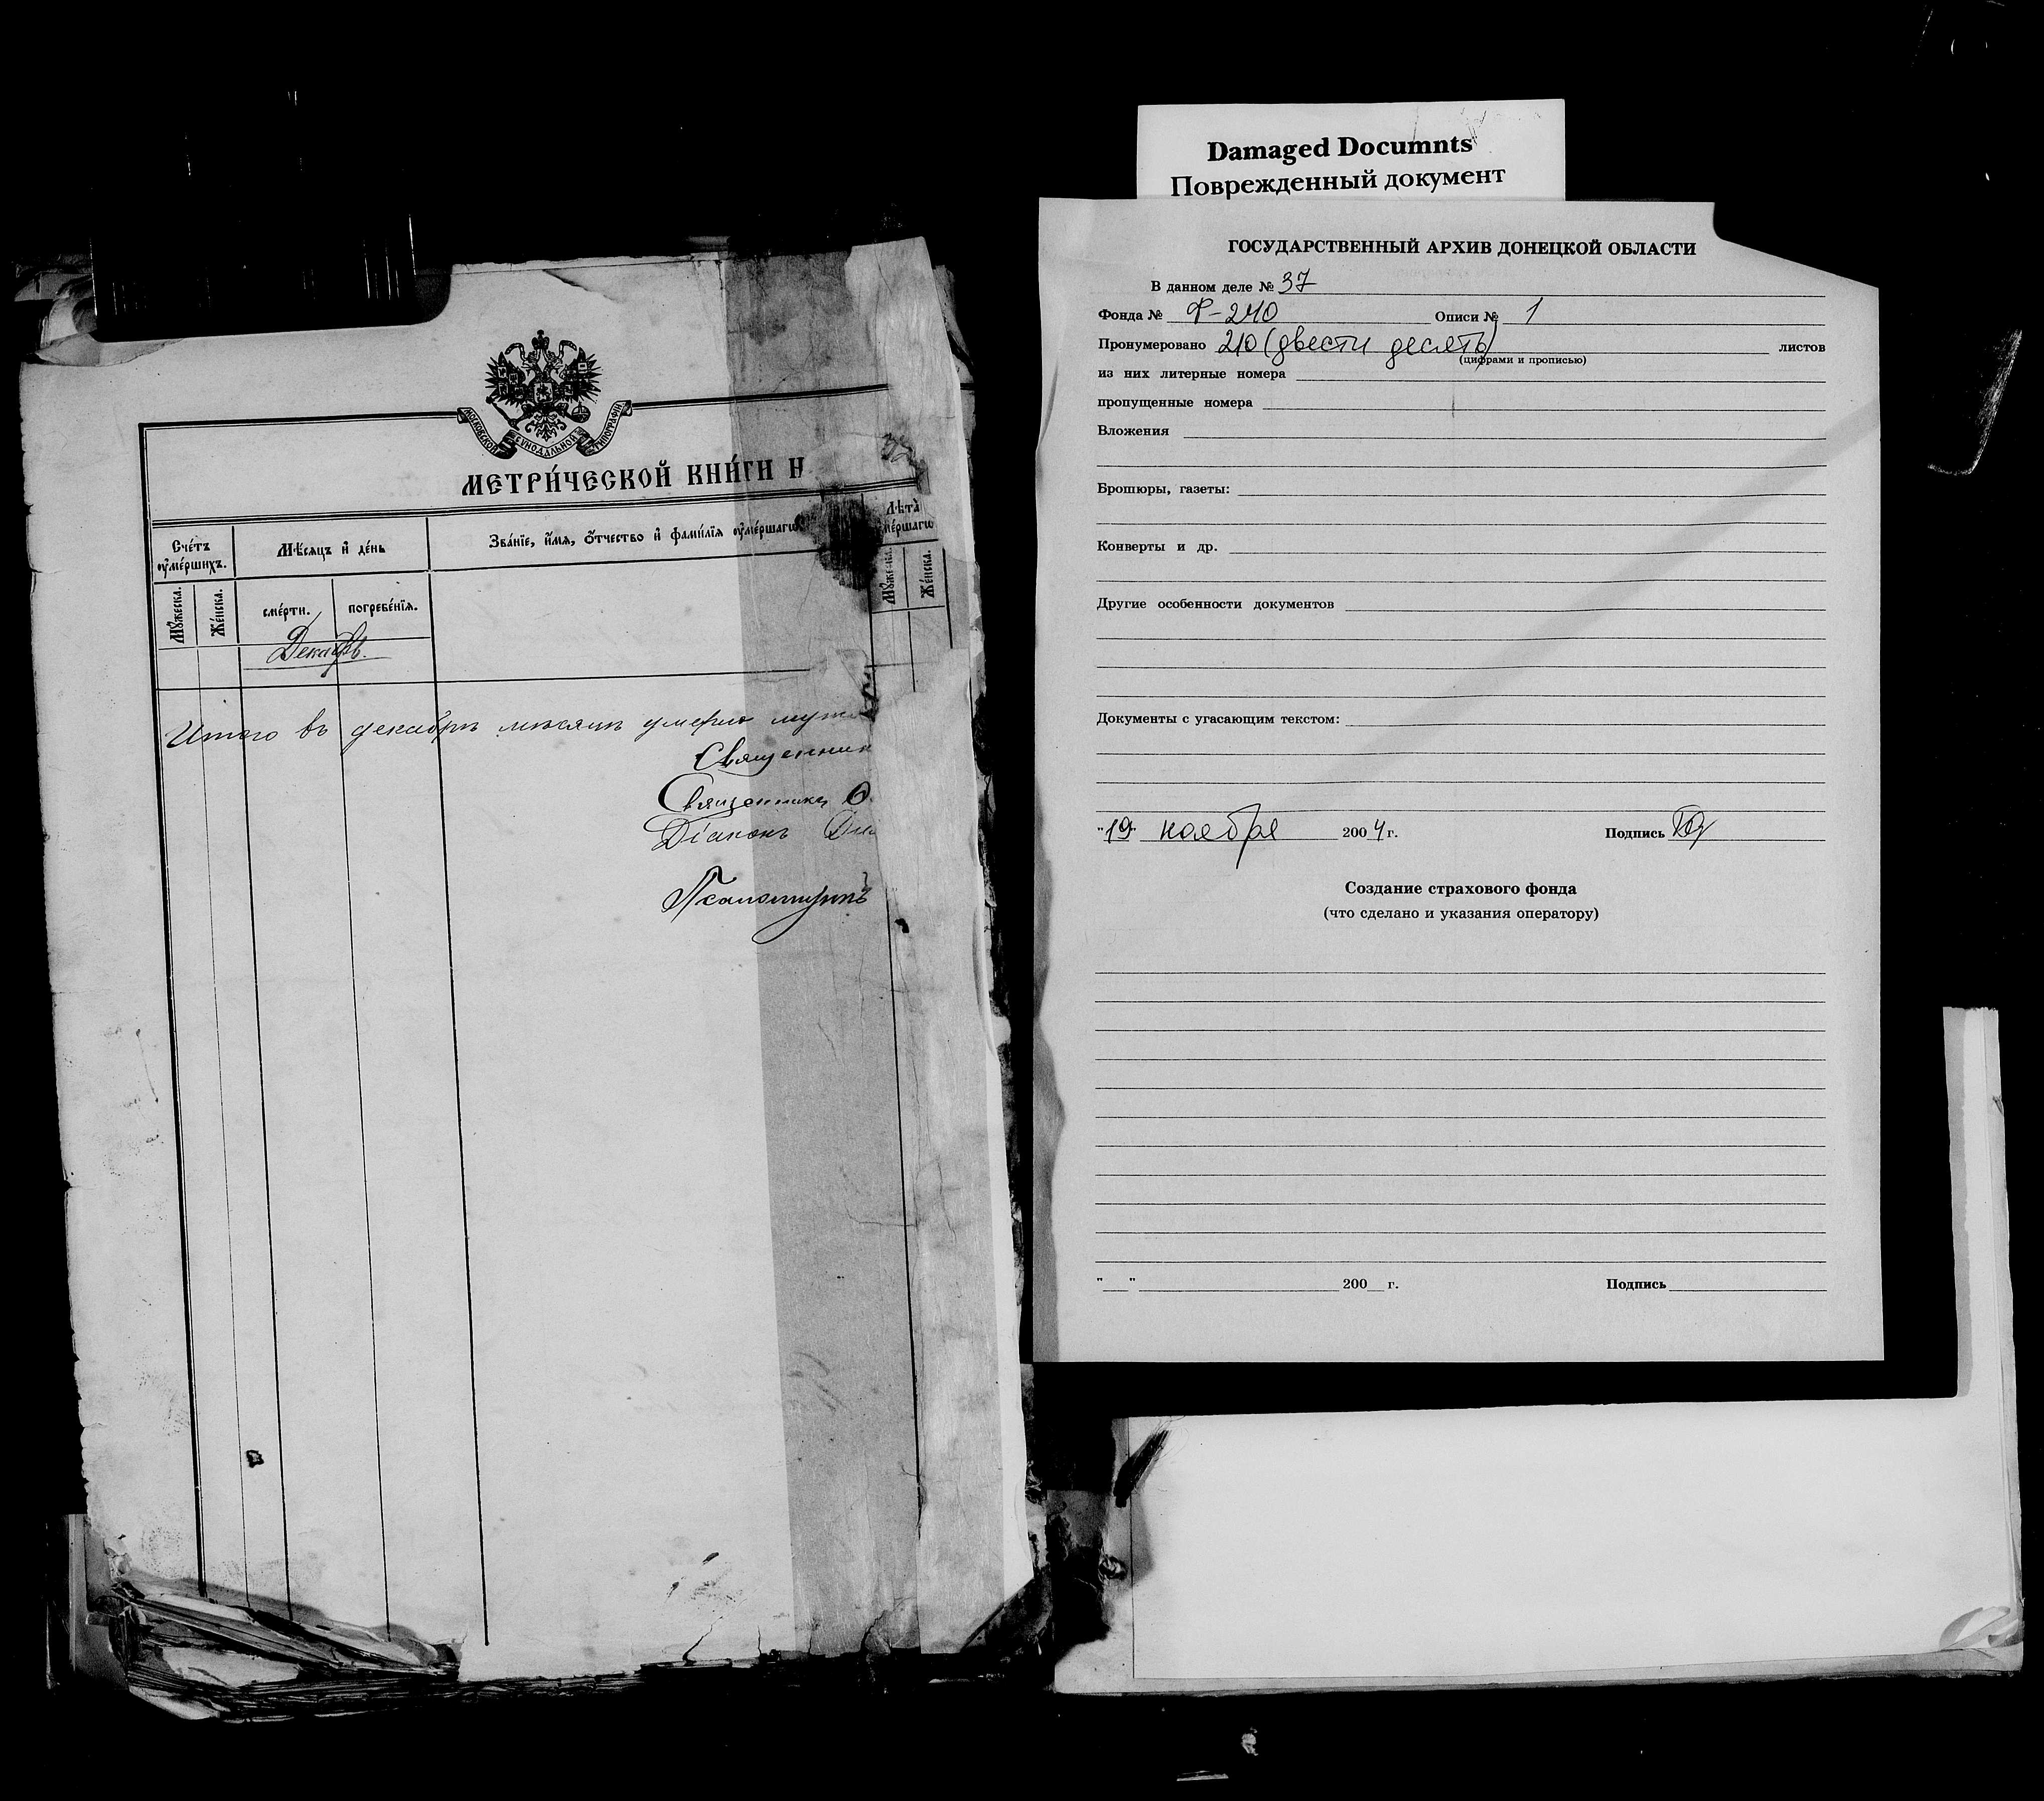 МОСКОВСКОЙ СѴНОДАЛЬНОЙ ТИПОГРАФІИ
МЕТРИ́ЧЕСКОЙ КНИ́ГИ Н
Сче́тъ ᲂу҆ме́ршихъ.
Мѣ́сяцъ и҆ де́нь
Зва́нїе, и҆́мѧ, ѻ҆́тчество и҆ фами́лїѧ ᲂу҆ме́ршагѡ
Лѣ́та ᲂу҆ме́ршагѡ
Мꙋ́жеска.
Же́нска.
сме́рти.
погребе́нїѧ.
Мꙋ́жеска.
Же́нска.
Декабрь.
Итого въ декабрѣ мѣсяцѣ умерло муж
Священник
Священникъ
Діаконъ
Псаломщикъ
Damaged Documnts
Поврежденный документ
ГОСУДАРСТВЕННЫЙ АРХИВ ДОНЕЦКОЙ ОБЛАСТИ
В данном деле № 37
Фонда № Ф-240 Описи № 1
Пронумеровано 210 (двести десять) листов
(цифрами и прописью)
из них литерные номера
пропущенные номера
Вложения
Брошюры, газеты:
Конверты и др.
Другие особенности документов
Документы с угасающим текстом:
"19" ноября 2004 г. Подпись
Создание страхового фонда
(что сделано и указания оператору)
"__" 200__ г. Подпись